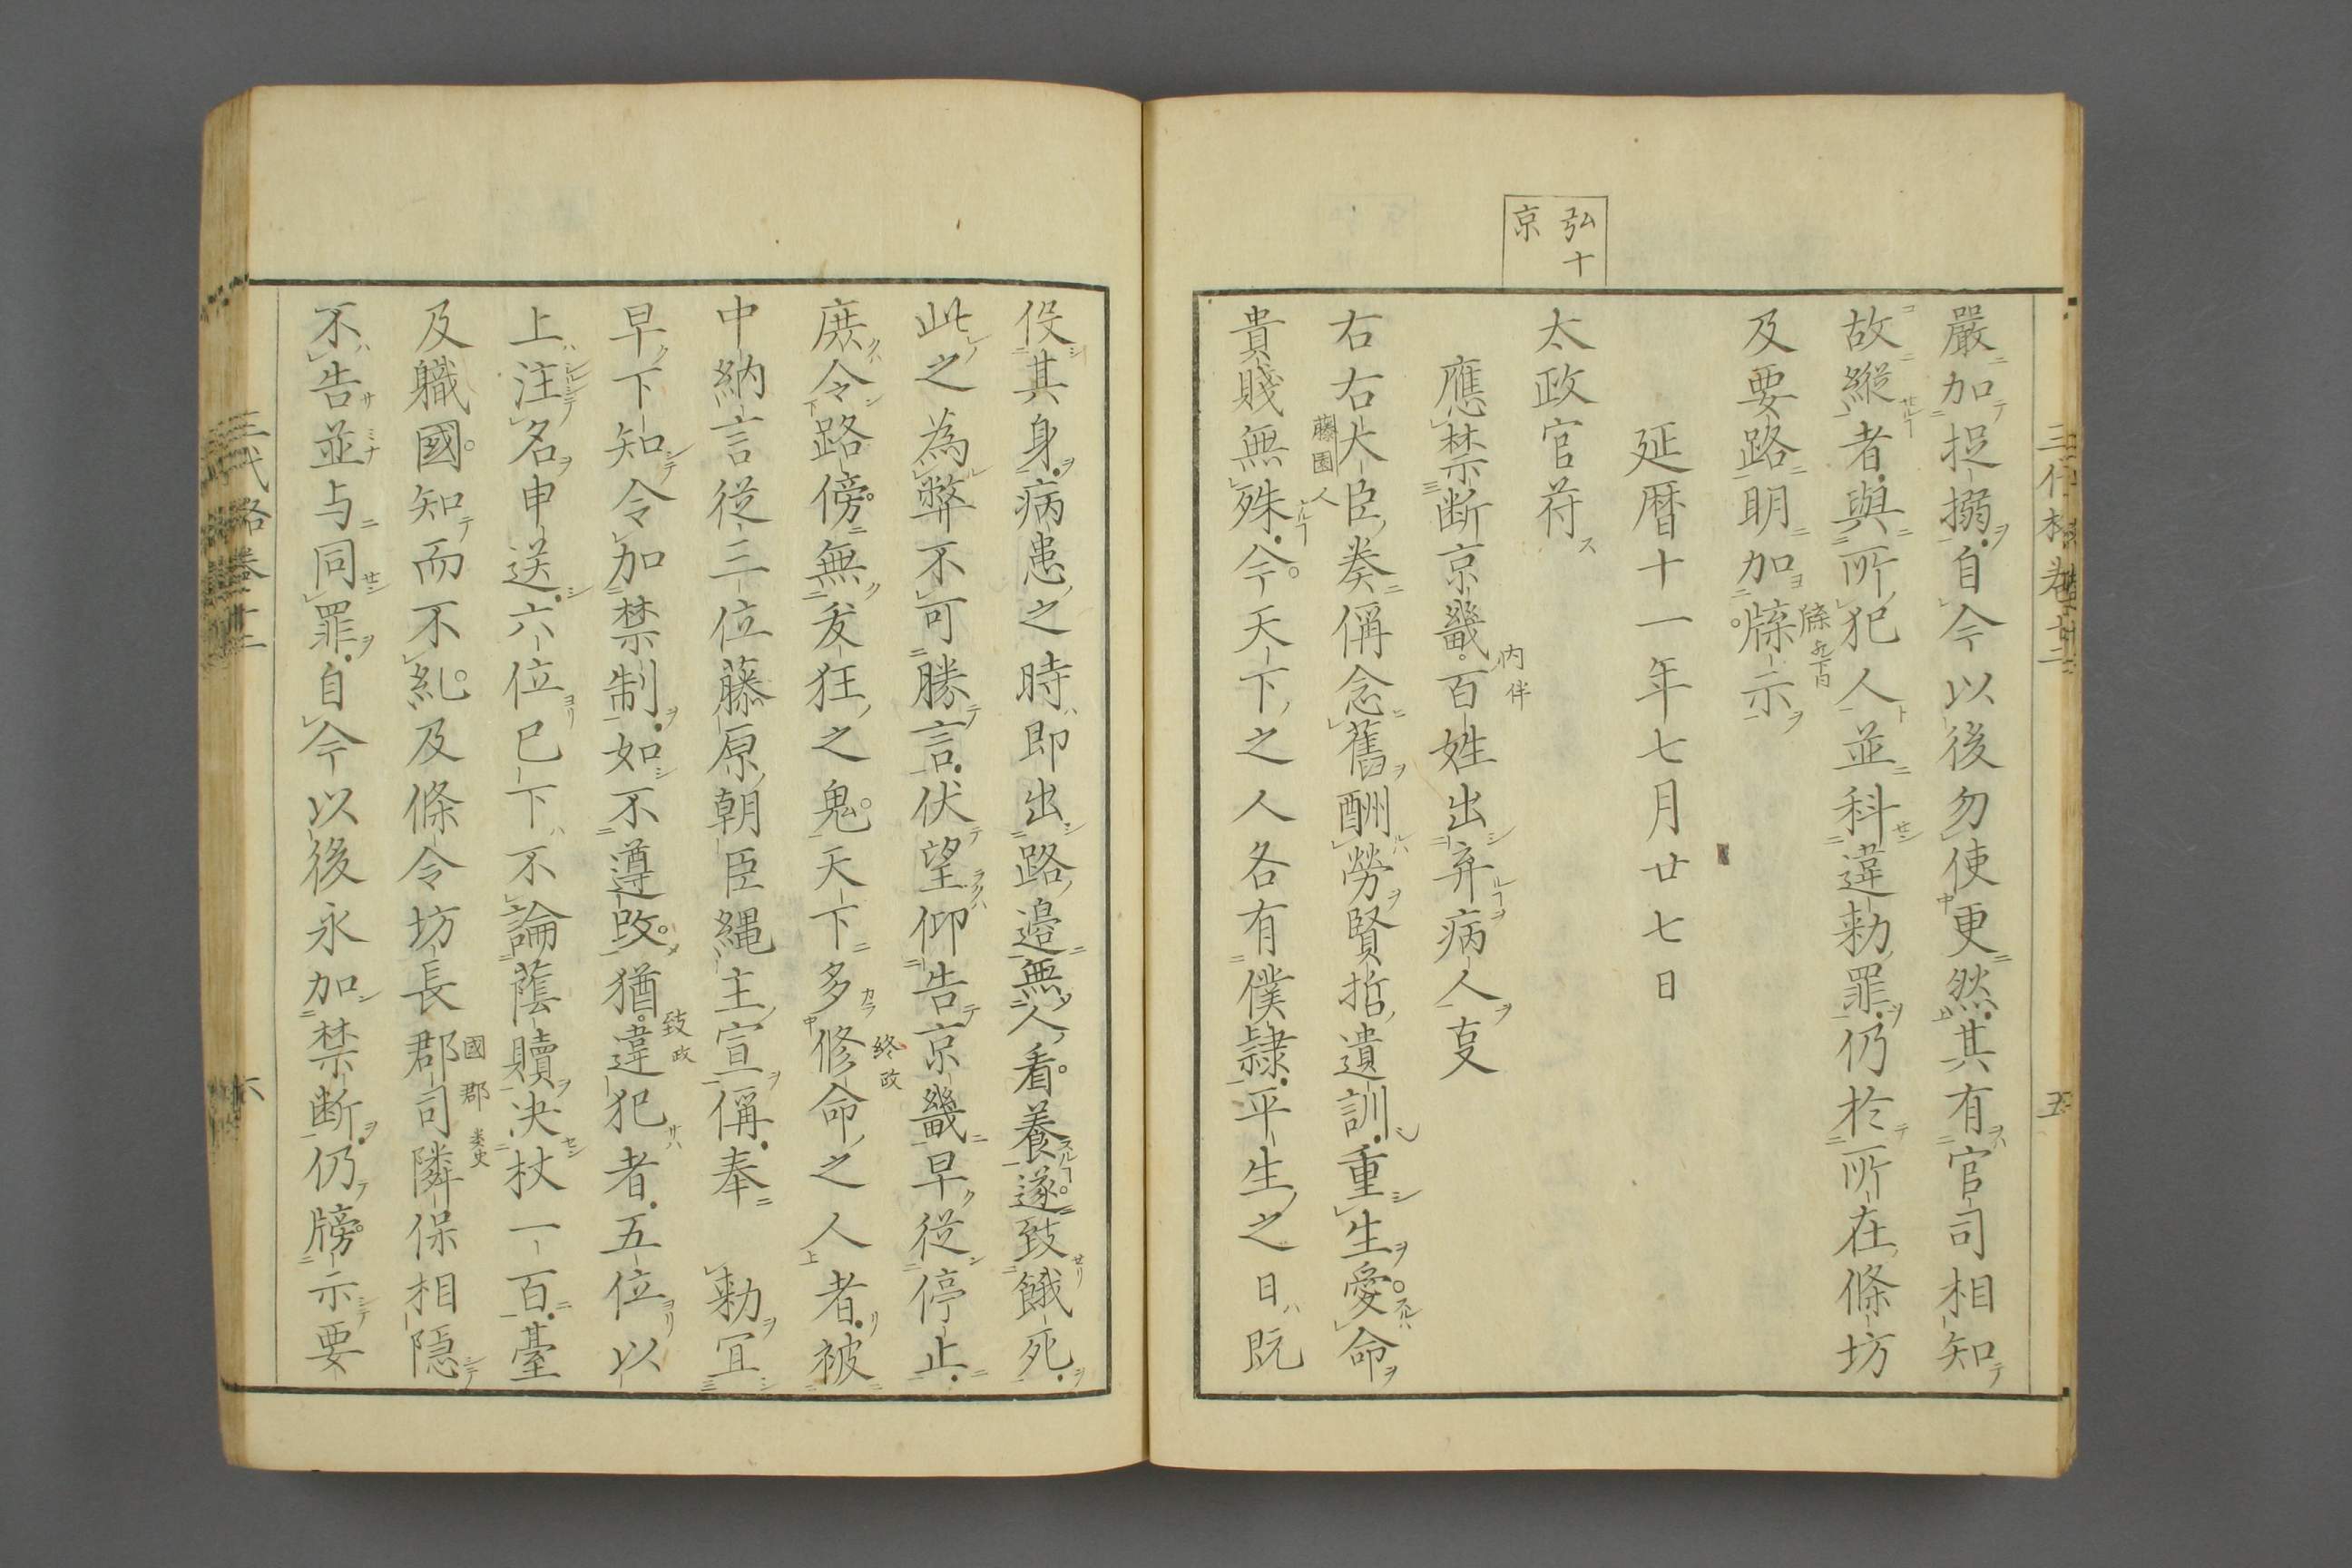 弘十
京
嚴加捉搦自今以後勿使更然其有官司相知
故縱者與所犯人並科違勅罪仍於所在條坊
及要路明加牓示
延暦十一年七月廿七日
太政官苻
應禁断京畿百姓出弃病人㕝
右右大臣奏偁念舊酬勞賢哲遺訓重生愛命
藤園人
貴賤無殊今天下之人各有僕隷平生之日既
役其身病患之時即出路邉無人看養遂致餓死
此之為弊不可勝言伏望仰告京畿早從停止
庶令路傍無夭狂之鬼天下多修命之人者被
終改
中納言從三位藤原朝臣縄主宣偁奉 勅冝
早下知令加禁制如不遵改猶違犯者五位以
致政
上注名申送六位已下不論蔭贖决杖一百臺
及職國知而不糺及條令坊長郡司隣保相隠
國郡
不告並与同罪自今以後永加禁断仍牓示要